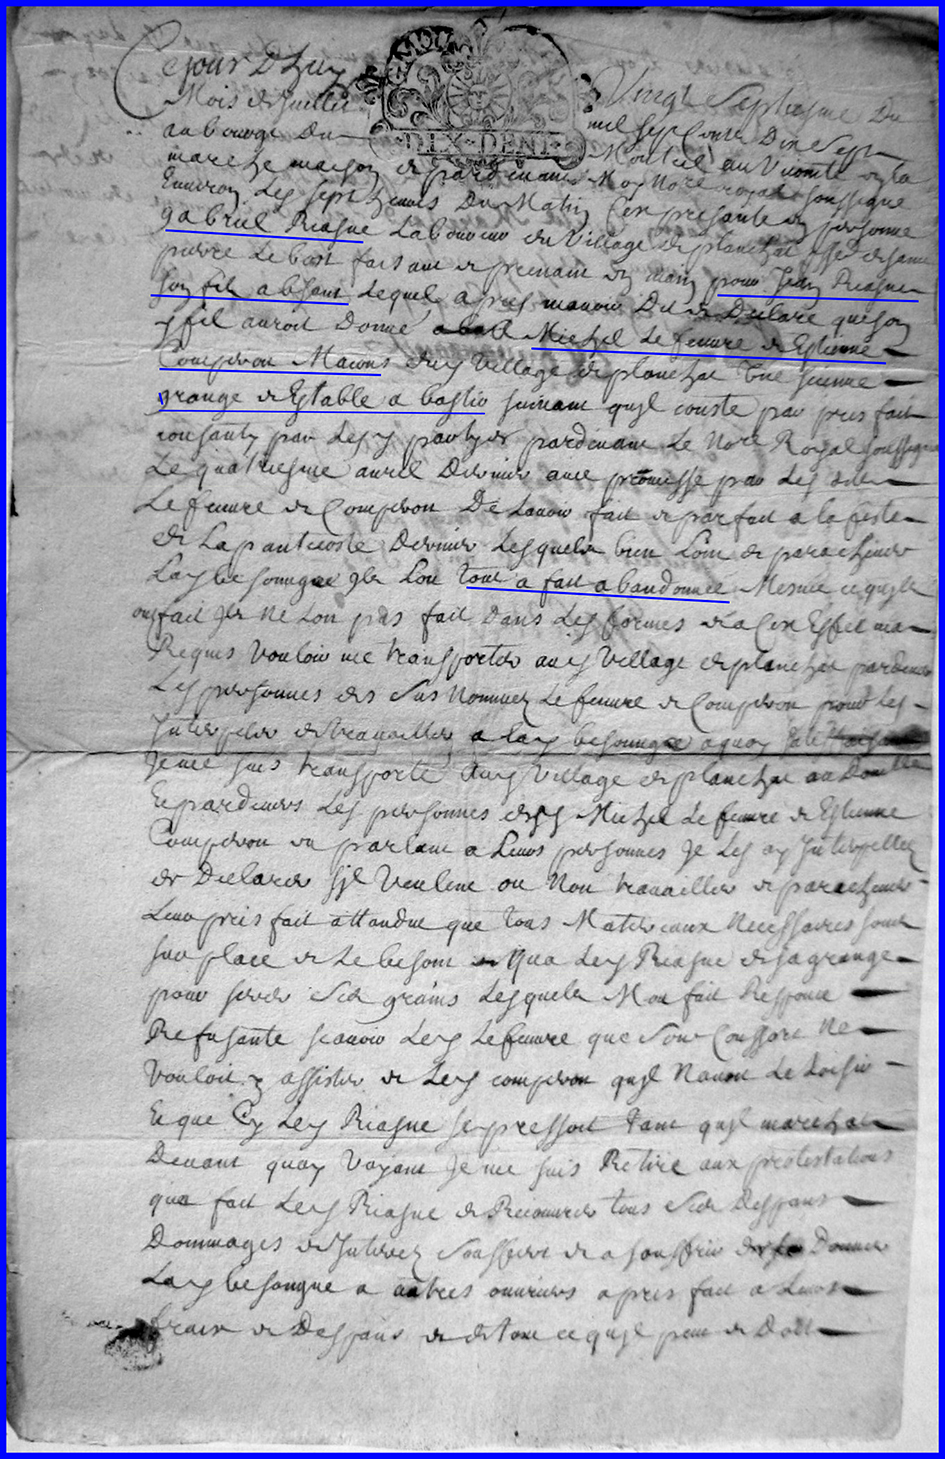 Cejour D huy Vingt Septiesme Du
Mois de Juillet mil Sept Cents Dixsept
DIX. DENI
au bourge Du Monteil au Vicomte
marche maison et pardevant Moy Nore royal soussigne
Environ Les sept heures Du Matin C'est presante en personne
gabriel Riasne Laboureur du Village de planchat psse de saint
pierre Le bost faisant et prenant en main pour Jean Riasne
son fil absant Lequel apres manoir Dit et Declare que son
y fil auroit Donné a Michel Lefeuvre et Estienne
Compdron Macons du y Village de planchat Une sienne
grange et Estable a bastir suivant qu'il conste par pris fait
consanty par Les y partyes pardevant Le Nore Royal soussigne
Le quatriesme auril Dernier avec promesse par Les
Lefeuvre et Compdron De Lavoir fait et parfait a la feste
de La pantecoste Dernier Lesquels bien Loin de parachever
Lay besoingne ils Lon tout a fait abandonnee Mesme ce quils
on fait ils ne Lon pas fait Dans Les formes et a Cest Effet ma
Requis Vouloir me transporter au y Village de planchat pardevant
Les personnes des Sus Nommez Lefeuvre et Compdron pour Les
Interpeler de travailler a lay besoingne a quoy
Je me suis transporté au y Village de planchat au
Et pardevers Les personnes desy Michel Lefeuvre et Estienne
Compdron ou parlant a Leurs personnes Je Les ay Interpellez
de Declarer sy Veulent ou Non travailler et parachever
Leur pris fait attandu que tous Materiaux Necessaires sont
sur place et Le besoin qua Ley Riasne de sa grange
pour serrer Ses grains Lesquels Mon fait Responce
Refusante scavoir Ley Lefeuvre que Son Consort Ne
Vouloit y assister et Ley compdron quil Navoit Le Loisir
Et que Sy Ley Riasne se pressoit tant quil marchat
Devant quoy Voyant Je me suis Retiré aux protestations
qua fait Ley Riasne de Recouvrer tous Ses Despans
Dommages et Interez Soufferts et a souffrir Donner
Lay besongne a autres ouvriers a pris fait a Leurs
fraix et Despans et de tout ce quil peut et Doit